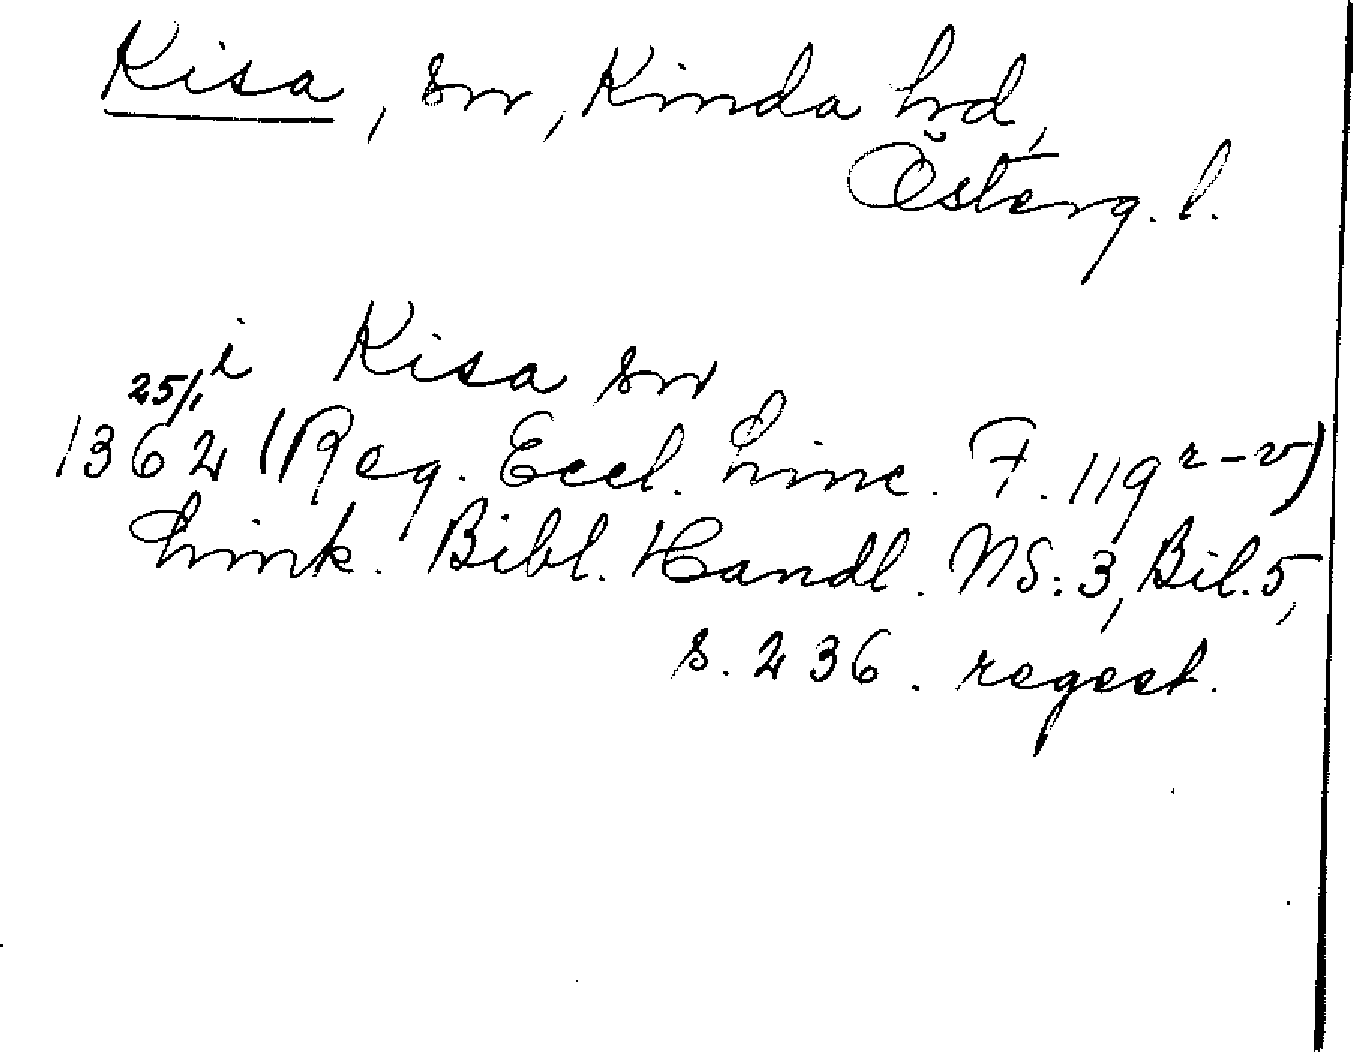 Kisa, sn, Kinda hd,
Österg. l.
i Kisa sn
25/1
1362 (Reg. Eccl. Linc. F. 119 r-v)
Link. Bibl. Handl. NS: 3, Bil. 5,
s. 236. regest.